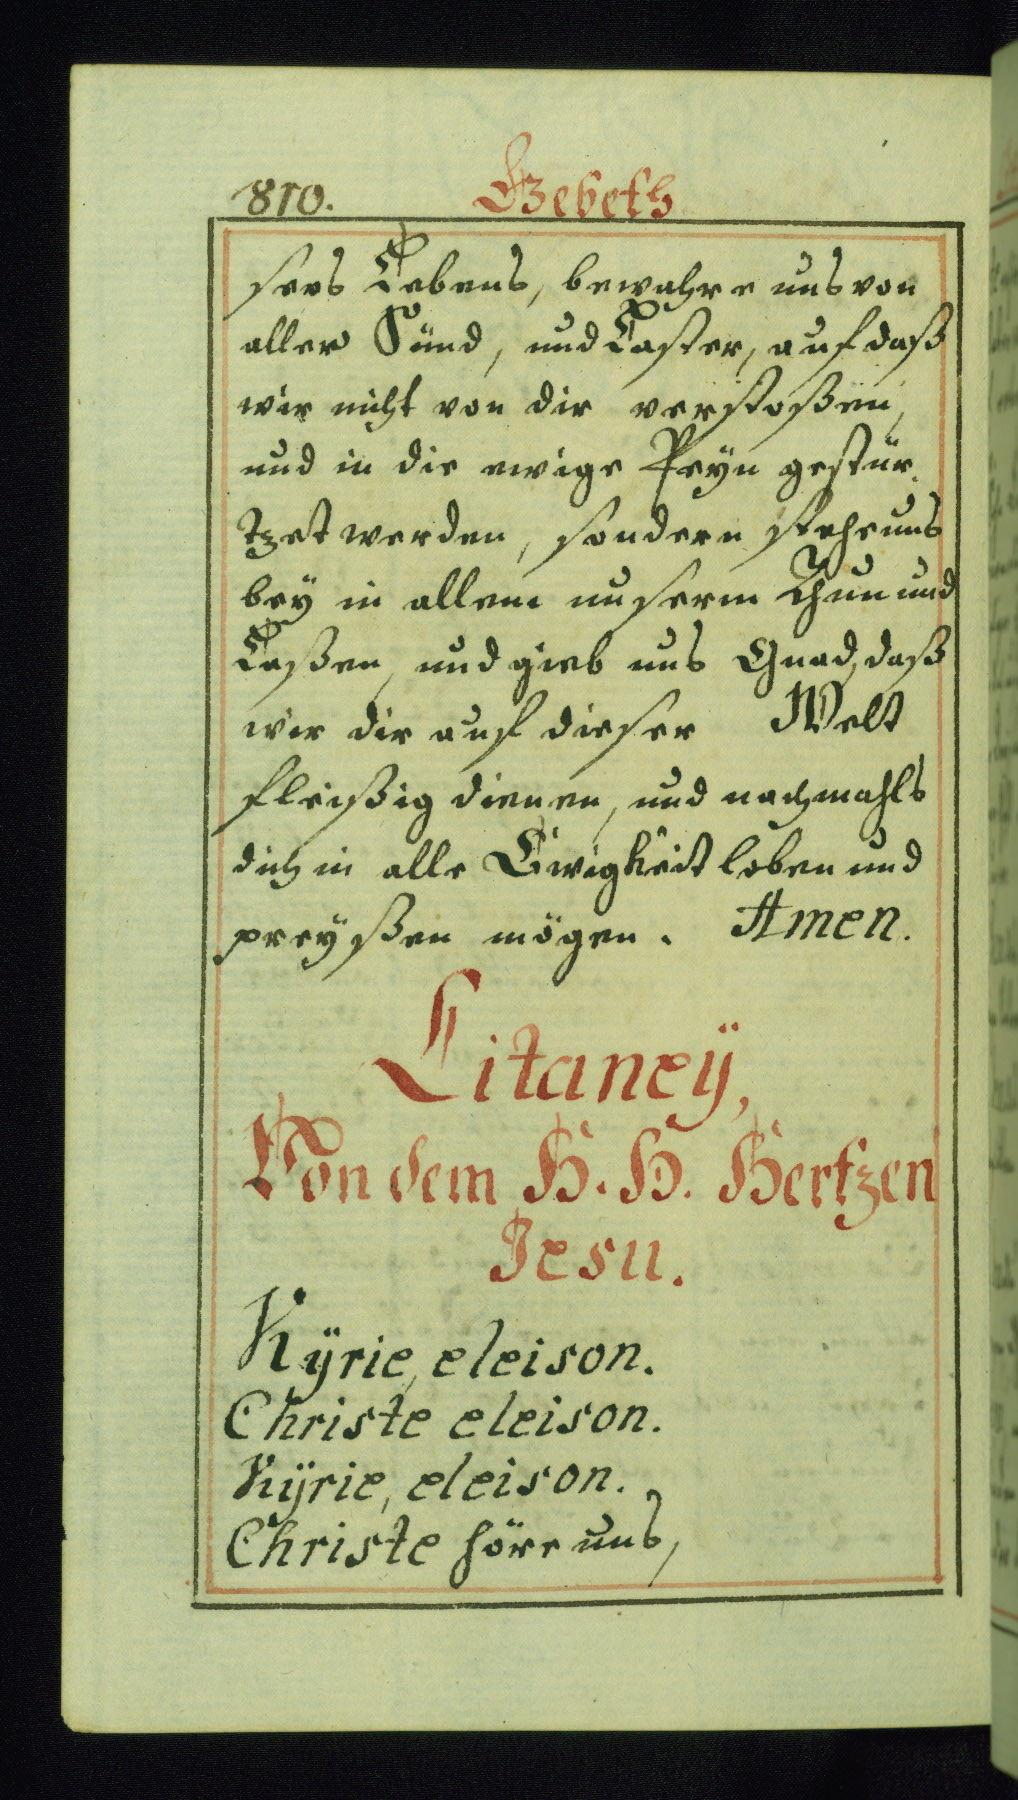 810. Gebeth
sers Lebens, bewahre uns von
aller Sünd, und Laster, auf daß
wir nicht von dir verstoßen,
und in die ewige Peÿn gestür-
tzet werden, sondern stehe uns
beÿ in allem unserm Thun und
Laßen, und gieb uns Gnad, daß
wir dir auf dieser Welt
fleißig dienen, und nachmahls
dich in alle Ewigkeit loben und
preÿßen mögen. Amen.
Litaneÿ,
Von dem H. H. Hertzen
Jesu.
Kÿrie, eleison.
Christe eleison.
Kÿrie, eleison.
Christe höre uns,